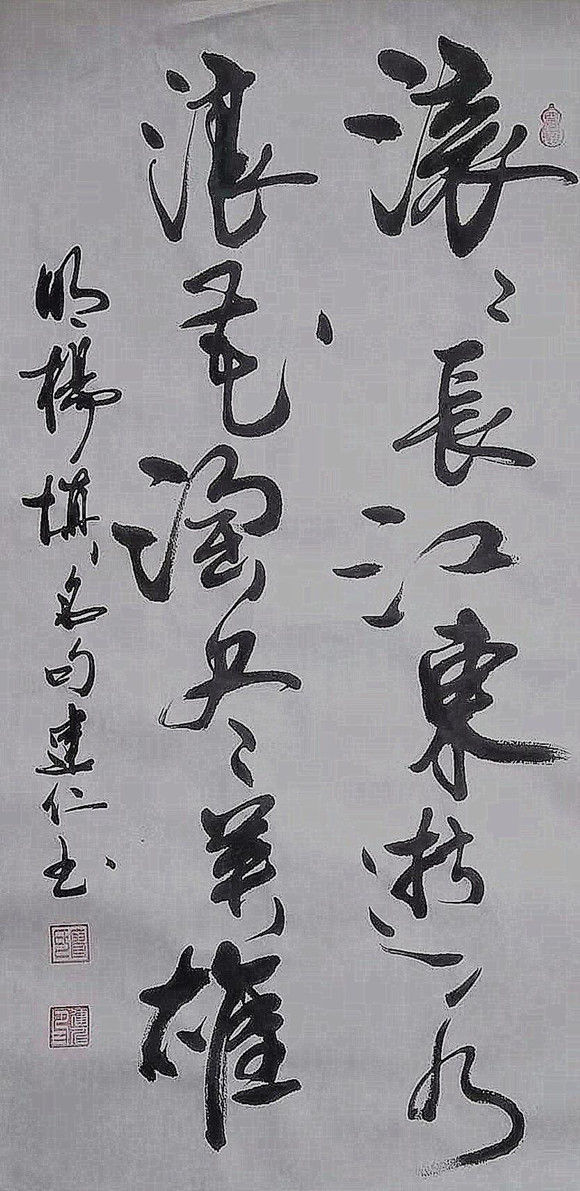 滚〻長江東逝水
浪花淘尽英雄
明楊慎名句建仁书